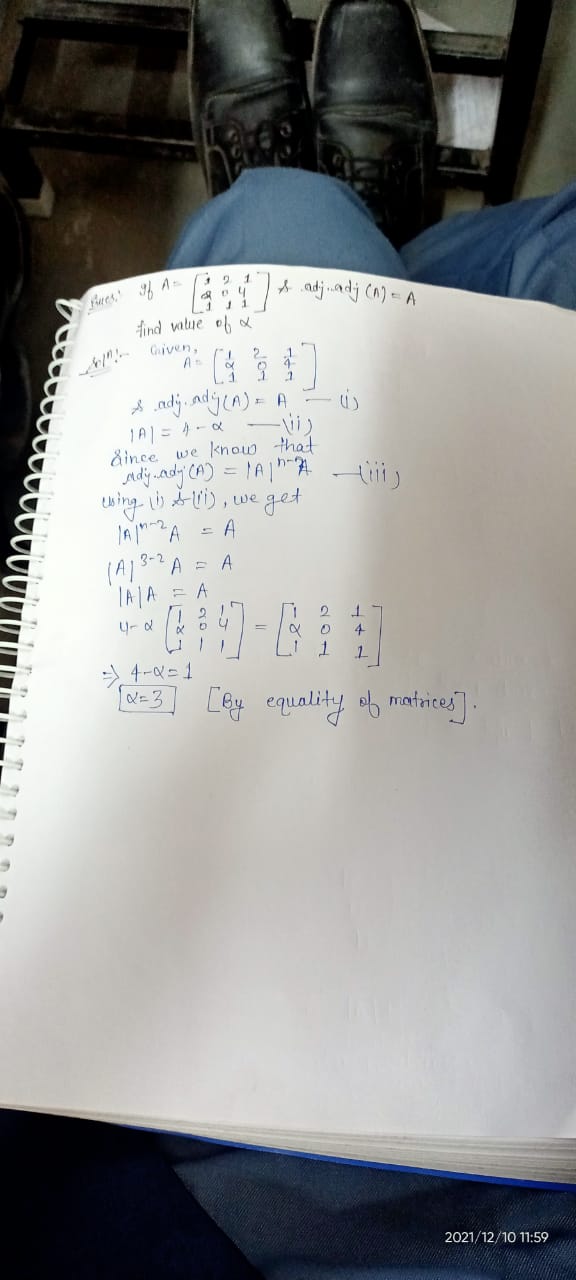 Ques: If A = [1 2 1
α 0 4
1 1 1] & adj.adj (A) = A
find value of α
Solⁿ:- Given,
A = [1 2 1
α 0 4
1 1 1]
& adj.adj(A) = A — (i)
|A| = 4-α — (ii)
Since we know that
adj.adj(A) = |A|ⁿ⁻²A — (iii)
using (i) & (ii), we get
|A|ⁿ⁻²A = A
|A|³⁻²A = A
|A|A = A
4-α [1 2 1
α 0 4
1 1 1] = [1 2 1
α 0 4
1 1 1]
⇒ 4-α=1
α=3 [By equality of matrices].
2021/12/10 11:59